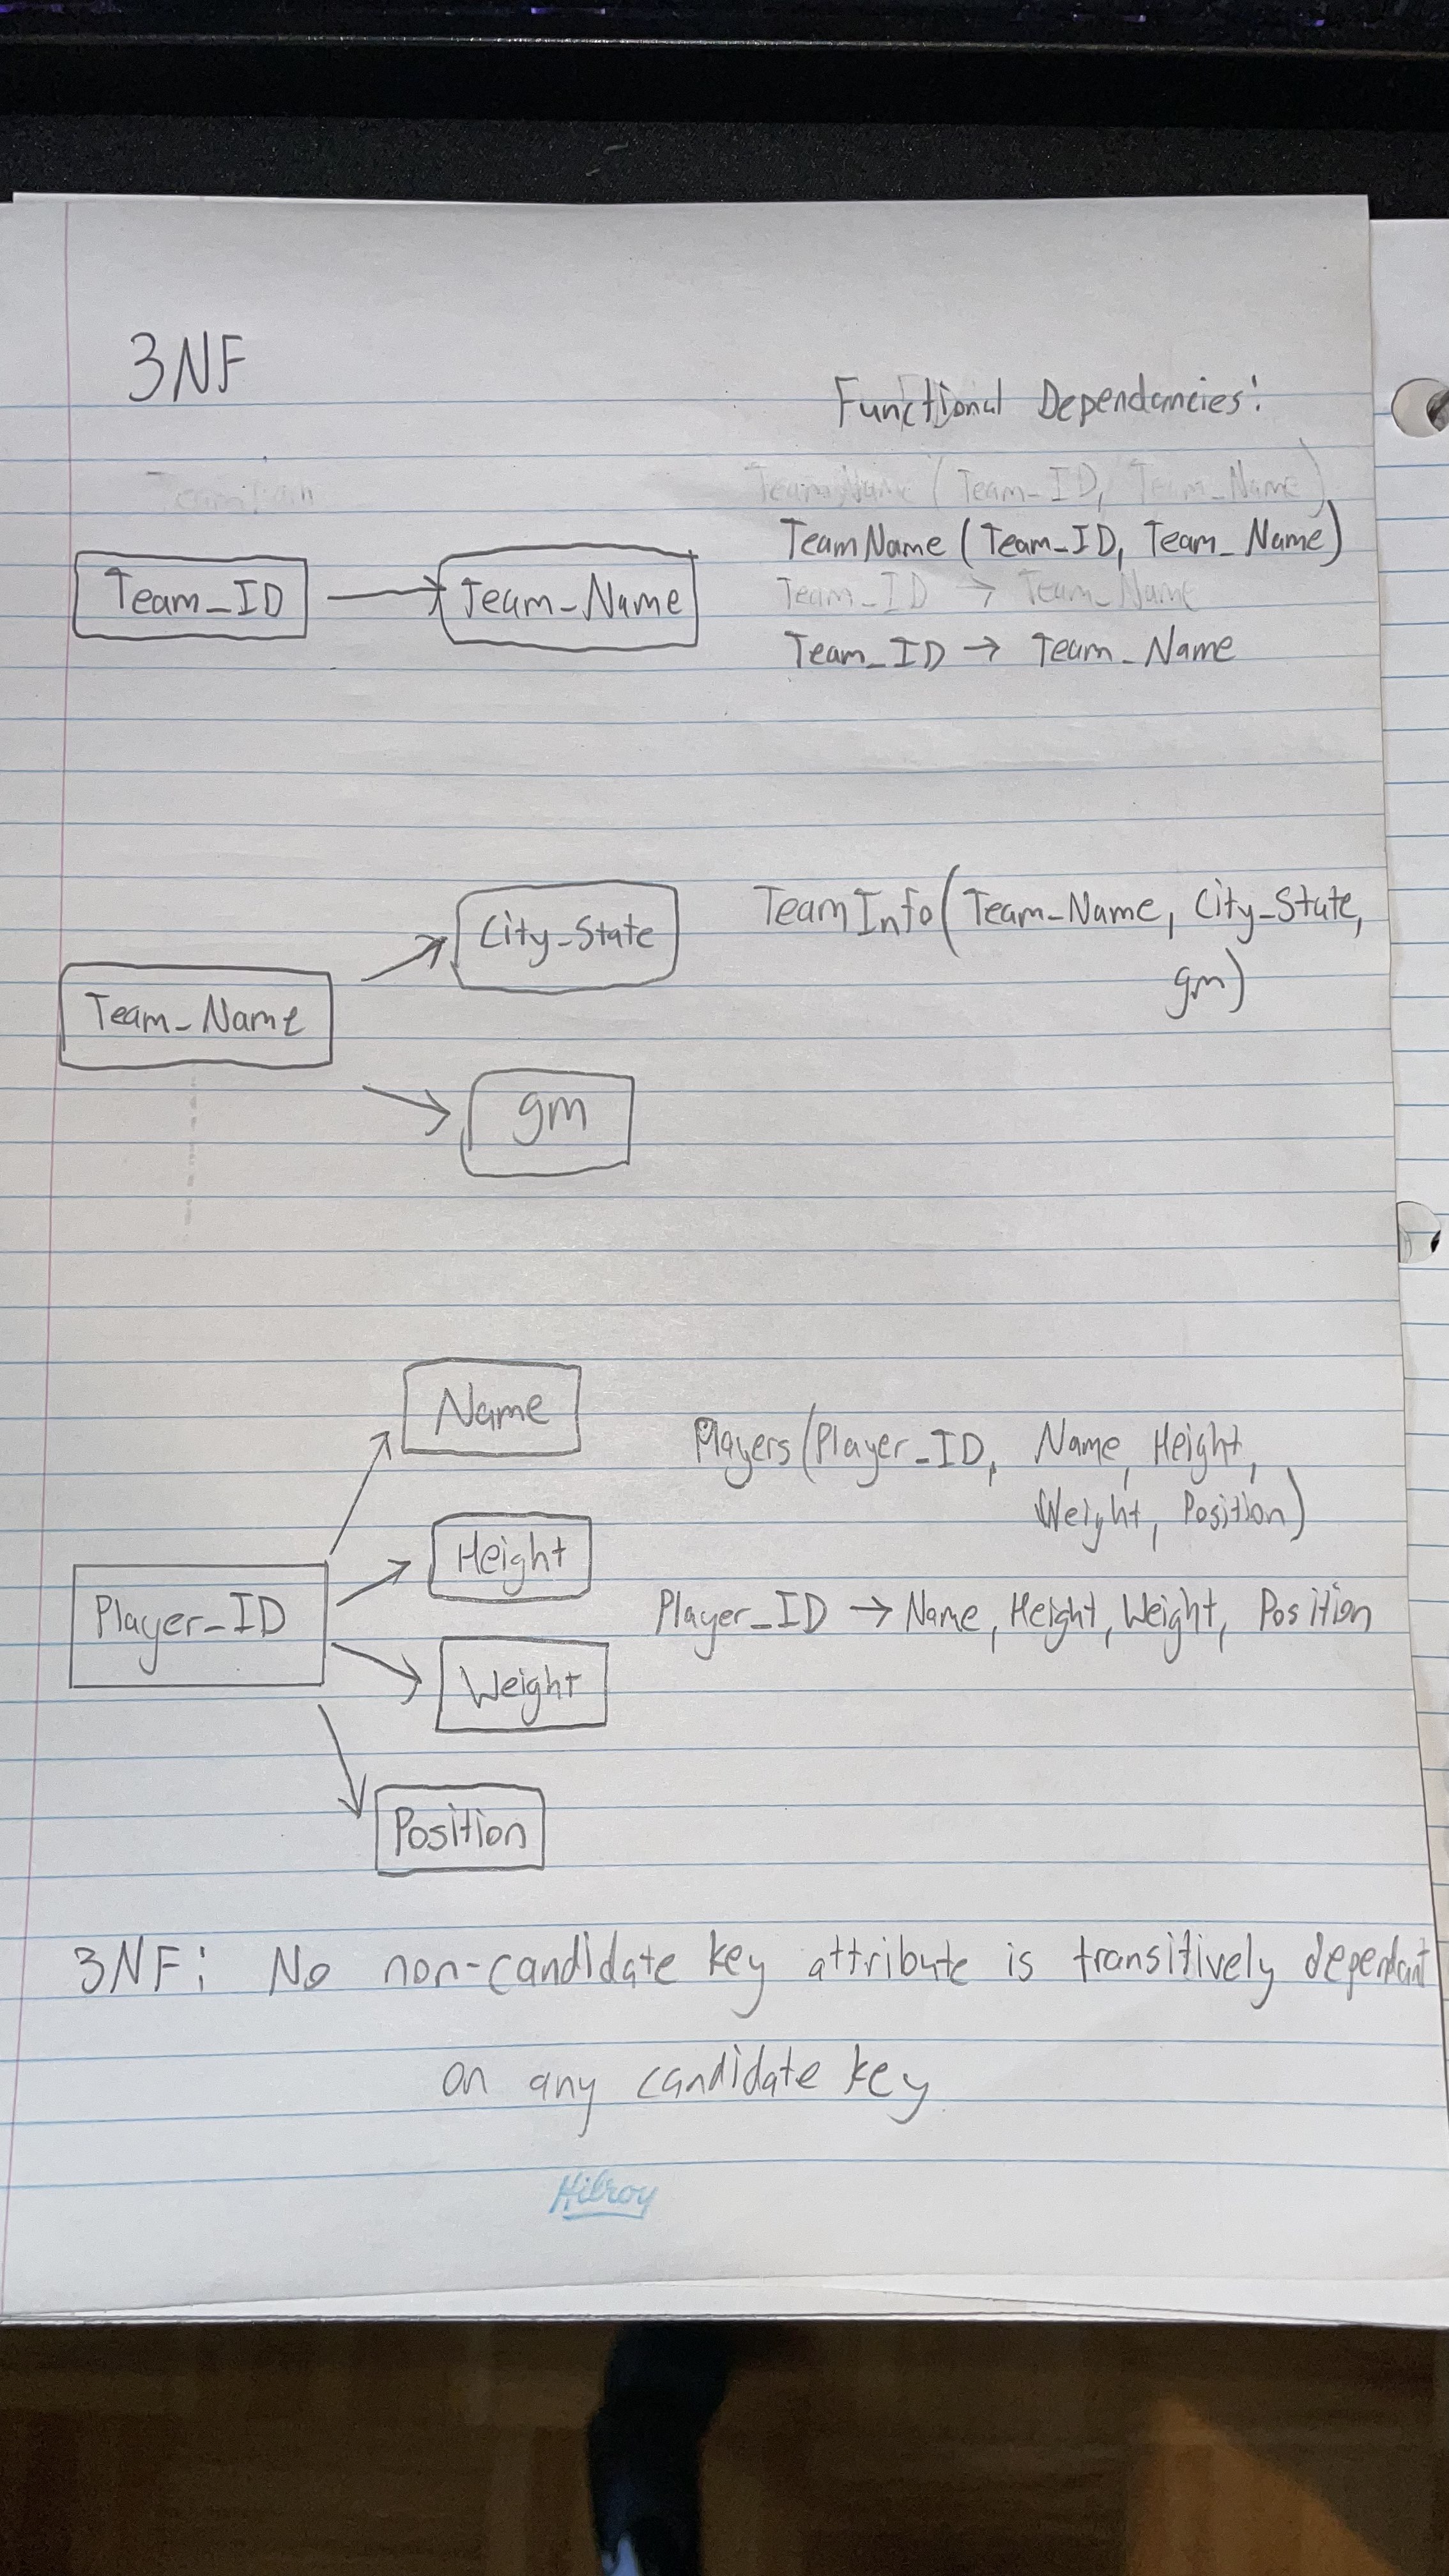 3NF
Functional Dependancies:
TeamName (Team_ID, Team_Name)
TeamName (Team_ID, Team_Name)
Team_ID → Team_Name
Team_ID → Team_Name
Team_ID → Team_Name
Team_Name
City_State
gm
TeamInfo (Team_Name, City_State,
gm)
Player_ID
Name
Height
Weight
Position
Players (Player_ID, Name, Height,
Weight, Position)
Player_ID → Name, Height, Weight, Position
3NF: No non-candidate key attribute is transitively dependant
on any candidate key
Hilroy